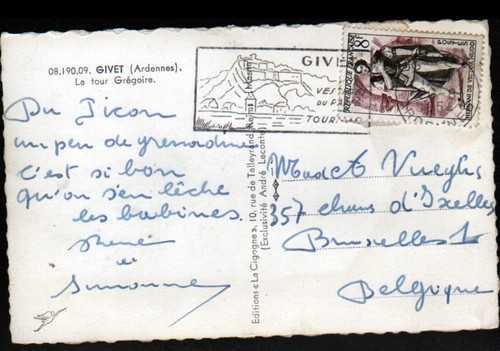 08.190.09. GIVET (Ardennes).
La tour Grégoire.
Du Picon
un peu de grenadine
c'est si bon
qu'on s'en lêche
les babines
et
Simonne
Editions « La Cigogne », 10, rue de Talleyrand, Reims (Marne)
(Exclusivité André Leconte)
GIVE
VEST
DU PA
TOUR
18F
REPUBLIQUE FRANÇAISE
357 chaus d'Ixelles
Bruxelles 1
Belgique